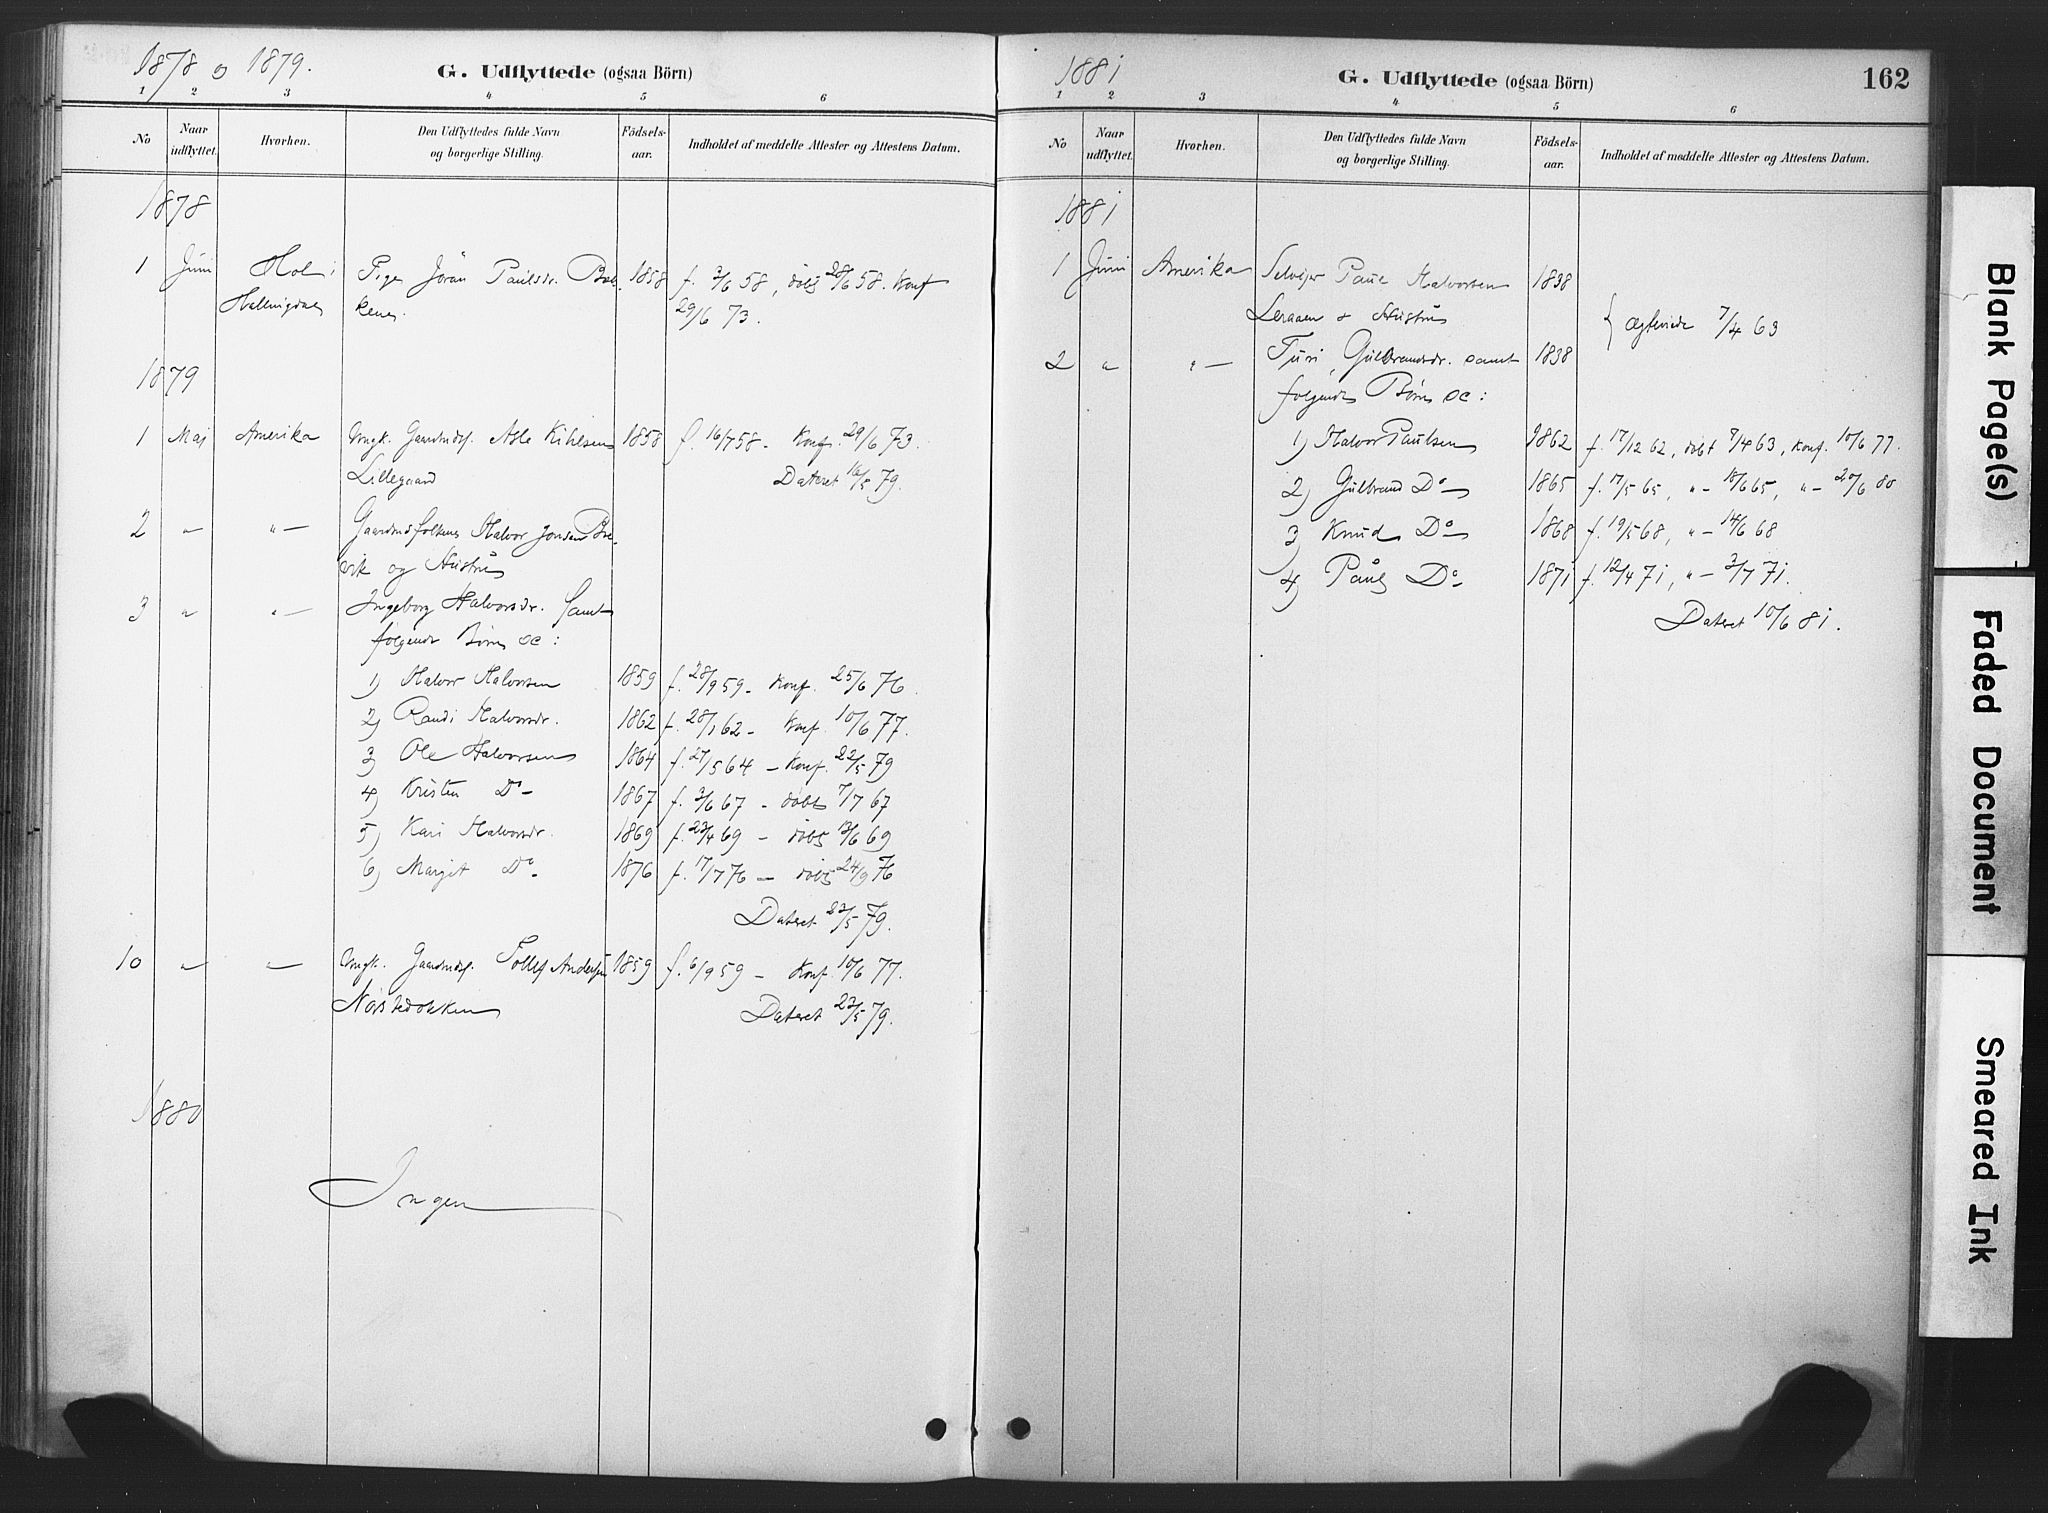 1878 og 1879.
G. Udflyttede (ogsaa Börn)
1 2 3 4 5 6
No
Naar udflyttet.
Hvorhen.
Den Udflyttedes fulde Navn og borgerlige Stilling.
Födsels-aar.
Indholdet af meddelte Attester og Attestens Datum.
1878
1 Juni Hol i Pige Jöran Paulsdr. 1858 f. 3/6 58, döbt 28/6 58. Konf
Hallingdal kenes. 29/6 73.
1879
1 Maj Amerika Ungk. Gaardmdsf. Asle Kihlsen 1858 f. 16/7 58 - Konf. 29/6 73.
Lillegaard Dateret 16/5 79.
2 " " Gaardmdsfolkene Halvor Jonsen Bre-
vik og Hustru
3 " " Ingeborg Halvorsdr. samt
følgende Børn sc:
1) Halvor Halvorsen 1859 f. 28/9 59 - Konf. 25/6 76.
2) Randi Halvorsdr. 1862 f. 28/1 62 - Konf. 10/6 77.
3) Ole Halvorsen 1864 f. 27/5 64 - Konf. 22/5 79
4) Kristen Do - 1867 f. 3/6 67 - døbt 7/7 67
5) Kari Halvorsdr. 1869 f. 23/4 69 - døbt 13/6 69
6) Margit Do - 1876 f. 17/7 76 - døbt 24/9 76
Dateret 23/5 79.
10 " " Ungk. Gaardmdsf. Tollef Andersen 1859 f. 6/9 59 - Konf. 10/6 77.
Nørstedokken Dateret 23/5 79.
1880
Ingen
1881
G. Udflyttede (ogsaa Börn)
162
1 2 3 4 5 6
No
Naar udflyttet.
Hvorhen.
Den Udflyttedes fulde Navn og borgerlige Stilling.
Födsels-aar.
Indholdet af meddelte Attester og Attestens Datum.
1881
1 Juni Amerika Selvejer Paul Halvorsen 1838
Leraaen & Hustru { Ægteviede 7/4 63
2 " " Turi Gulbrandsdr. samt 1838
følgende Børn sc:
1) Halvor Paulsen 1862 f. 17/12 62, døbt 7/4 63, Konf. 10/6 77.
2) Gulbrand Do 1865 f. 17/5 65, " - 18/6 65, " - 20/6 80
3) Knud Do 1868 f. 19/5 68, " - 14/6 68
4) Paul Do - 1871 f. 12/4 71, " - 2/7 71.
Dateret 10/6 81.
Blank Page(s)
Faded Document
Smeared Ink